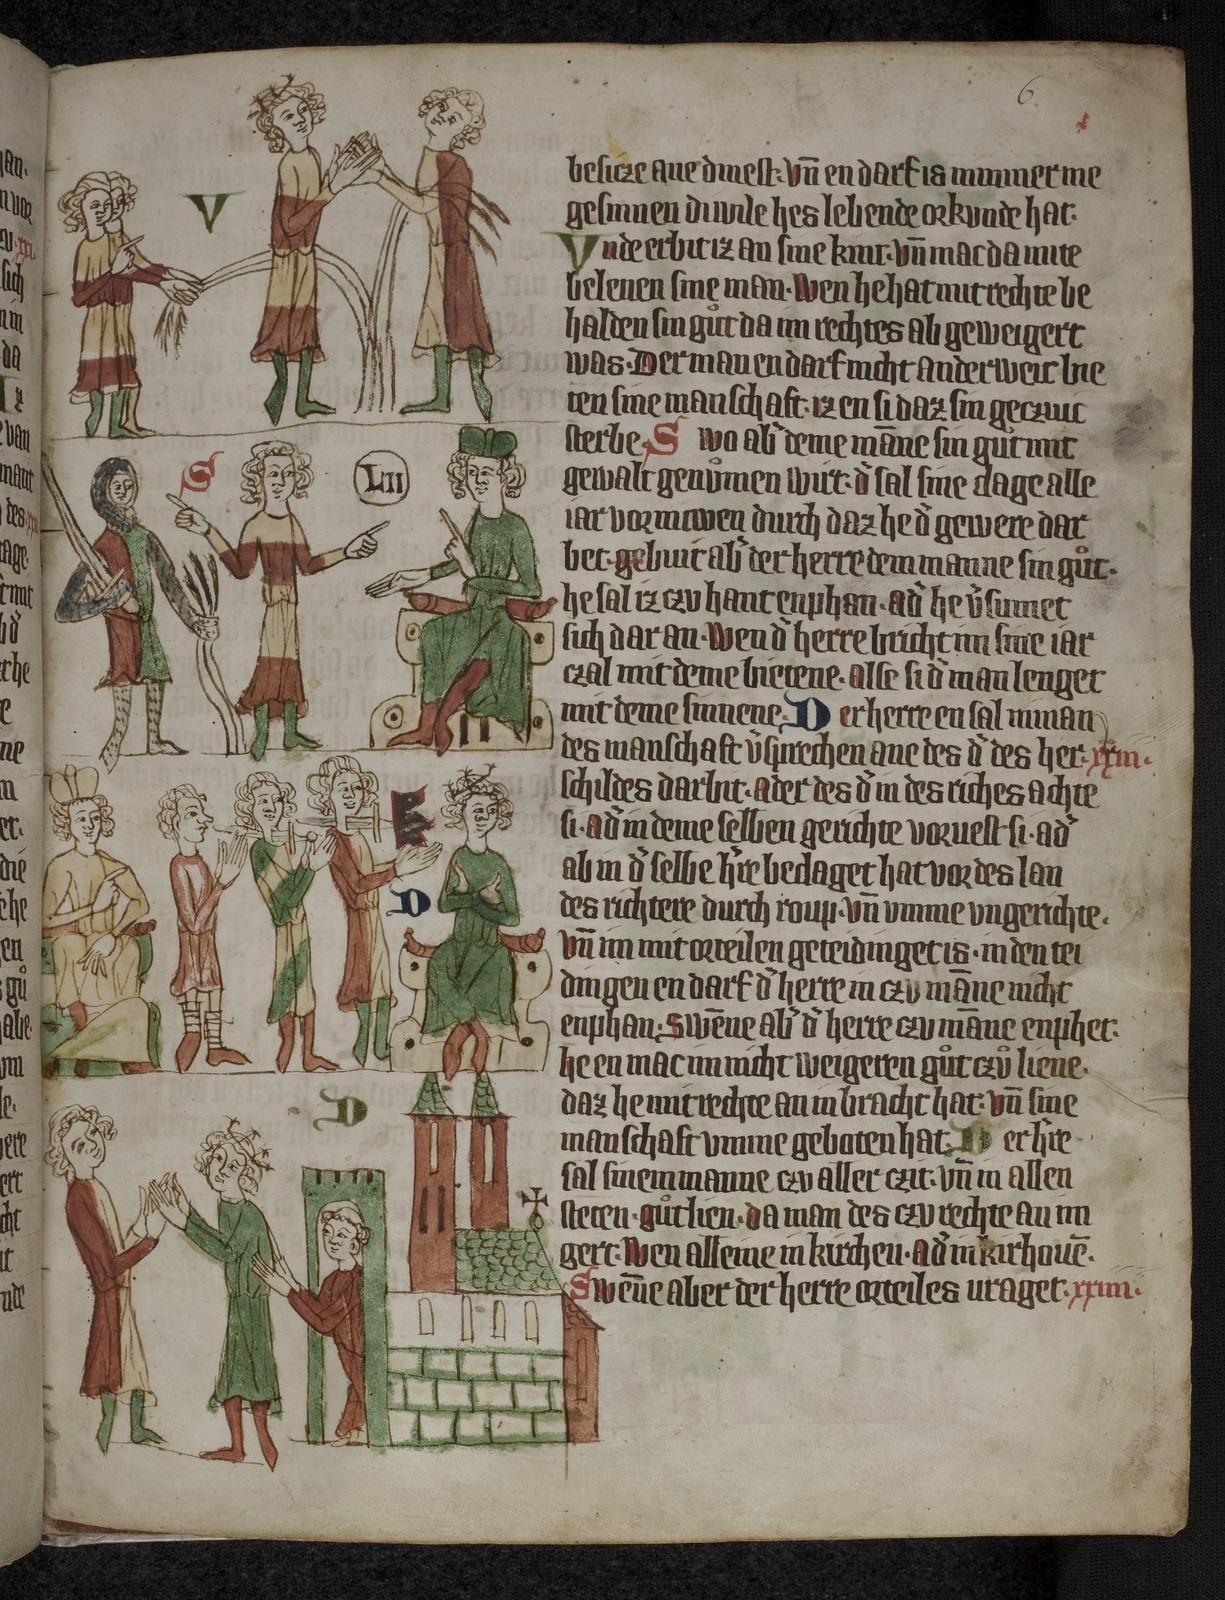 6
besicze ane dinest· vn̄ en darf is nimmer me
gesinnen di wile hes lebende orkunde hat·
Vnde erbit iz an sine kint· vn̄ mac da mite
belenen sine man· Wen he hat mit rechte be
halden sin gůt da im rechtes ab geweigert
was· Der man en darf nicht anderweit bie
ten sine manschaft· iz en si daz sin geczuic
sterbe· Swo ab᷎ deme māne sin gůt mit
gewalt genům̄en wirt· d᷎ sal sine clage alle
iar vornuwen durch daz he d᷎ gewere dar
bet· gebuit ab᷎ der herre dem manne sin gůt·
he sal iz czu hant enphan· ad᷎ he v᷎sumet
sich dar an· Wen d᷎ herre bricht im sine iar
czal mit deme bietene· alse si d᷎ man lenget
mit deme sinnene· Der herre en sal niman
des manschaft v᷎sprechen ane des d᷎ des her· xxiii·
schildes darbit· ader des d᷎ in des riches achte
si· ad᷎ in deme selben gerichte voruest si· ad᷎
ab in d᷎ selbe h᷎re beclaget hat vor des lan
des richtere durch roup· vn̄ vmme vngerichte·
vn̄ im mit orteilen geteidinget is· in den tei
dingen en darf d᷎ herre in czu māne nicht
enphan· Swēne ab᷎ d᷎ herre czu māne enphet·
he en mac im nicht weigeren gůt czů liene·
daz he mit rechte an in bracht hat· vn̄ sine
manschaft vmme geboten hat· Der h᷎re
sal sinem manne czu aller czit· vn̄ in allen
steten· gůt lien· da man des czu rechte an im
gert· Wen alleine in kirchen· ad᷎ in kirhouē·
Swēne aber der herre orteiles vraget· xxiiii·
V
S
LII
D
D